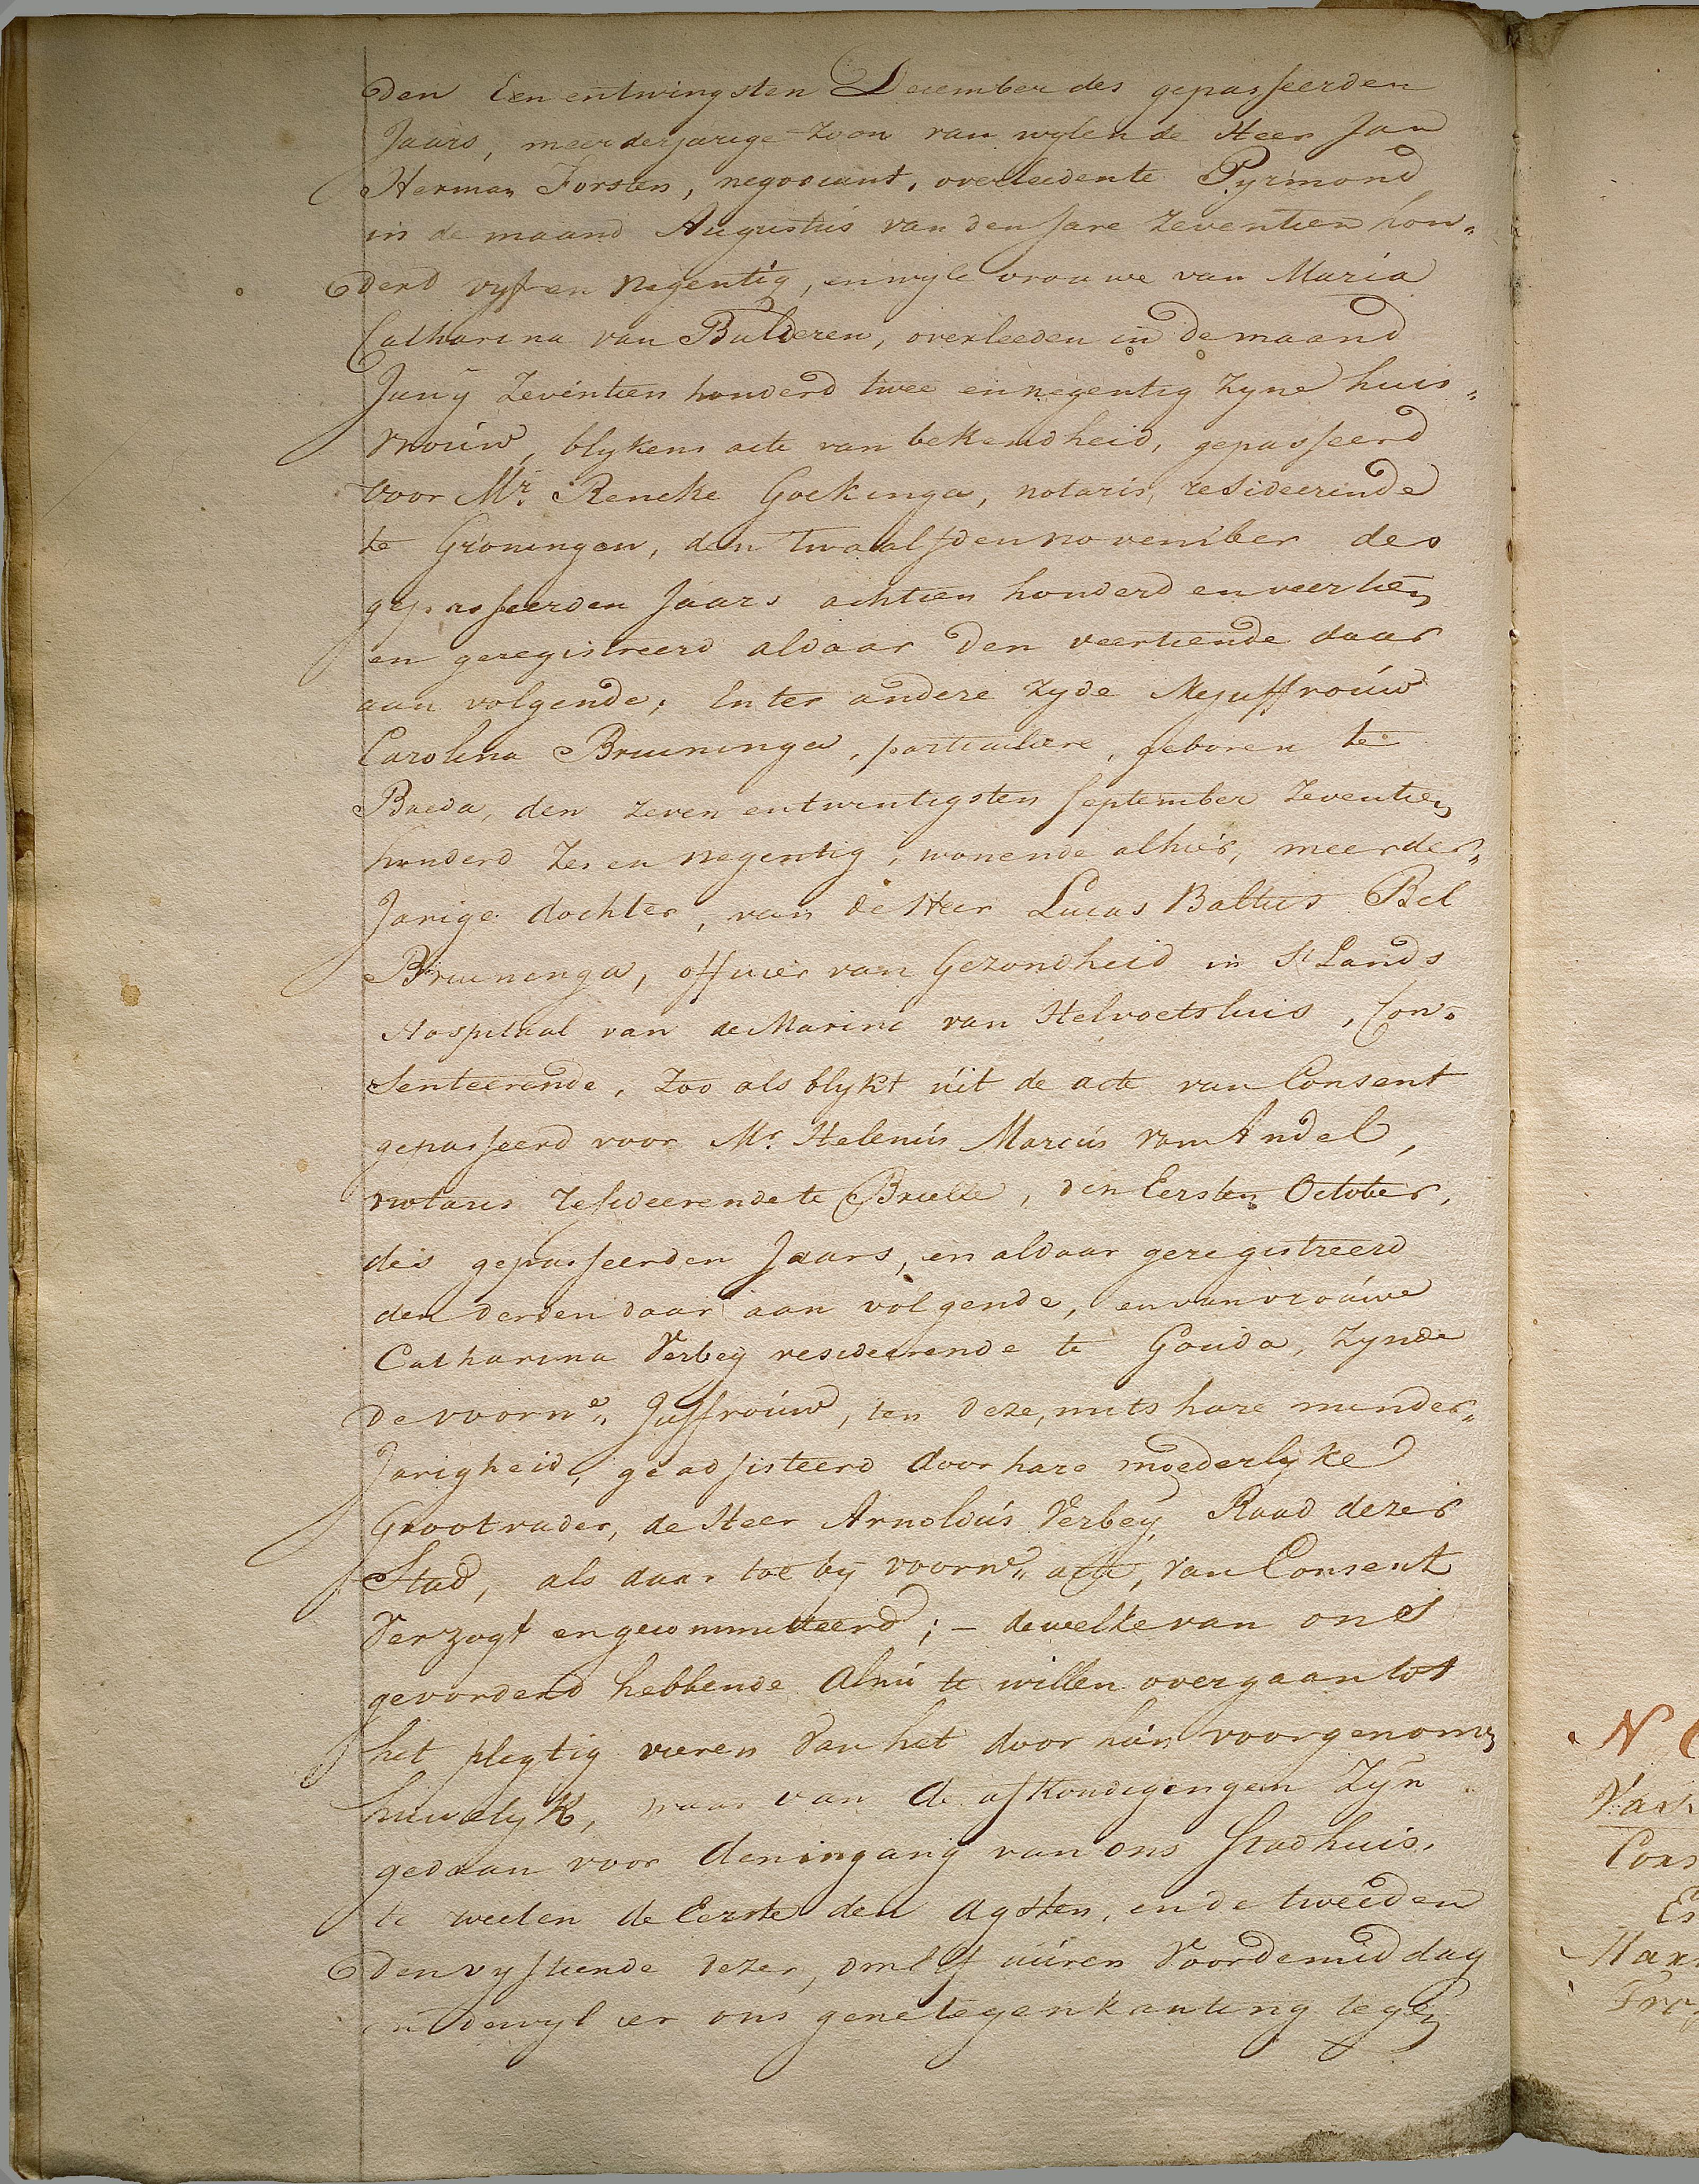 den Een entwingsten December des gepasseerden
Jaars, meerderjarige Zoon van wylen de Heer Jan
Herman Forsten, negociant, overleedente Pyrmond
in de maand Augustus van den Jare Zeventien hon„
derd vyf en Negentig, en wyle vrouwe van Maria
Catharina van Bulderen, overleeden in de maand
Juny Zeventien honderd twee en negentig Zyne huis„
vrouw, blykens acte van bekendheid, gepasseerd
voor Mr. Reneke Gockinga, notaris, resideerende
te Groningen, den Twaalfden november des
gepasseerden Jaars achtien honderd en veertien
en geregistreerd aldaar den veertiende daar
aan volgende; En ter andere Zyde Mejuffrouw
Carolina Bruininga, particuliere, geboren te
Breda, den Zeven entwintigsten September Zeventien
honderd Zes en negentig, wonende alhier, meerder„
Jarige dochter, van de Heer Lucas Baltus Bel
Bruininga, officier van Gezondheid in St Lands
Hospitaal van de Marine van Helvoetsluis, Con„
senteerende, Zoo als blykt uit de acte van Consent
gepasseerd voor Mr. Helenus Marcus van Andel,
notaris resideerende te Brielle, den Eersten October,
des gepasseerden Jaars, en aldaar geregistreerd
den derden daar aan volgende, en van vrouwe
Catharina Verbeij resideerende te Gouda, Zynde
de voorne. Juffrouw, ten deze, mits hare minder„
Jarigheid, geadsisteerd door hare moederlyke
Grootvader, de Heer Arnoldus Verbeij Raad dezer
Stad, als daar toe by voorne„ acte, van Consent
Verzogt en gecommitteerd; – dewelke van ons
gevorderd hebbende Alnu te willen overgaan tot
het plegtig vieren van het door hun voorgenomen
huwelyk, waar van de afkondigingen Zyn
gedaan voor den ingang van ons Stadhuis,
te weeten de Eerste den agsten, en de tweeden
den vyftiende dezer, om Elf uuren Voordemiddag
en dewyl er ons gene tegenkanting tegen
N
Van
Cons